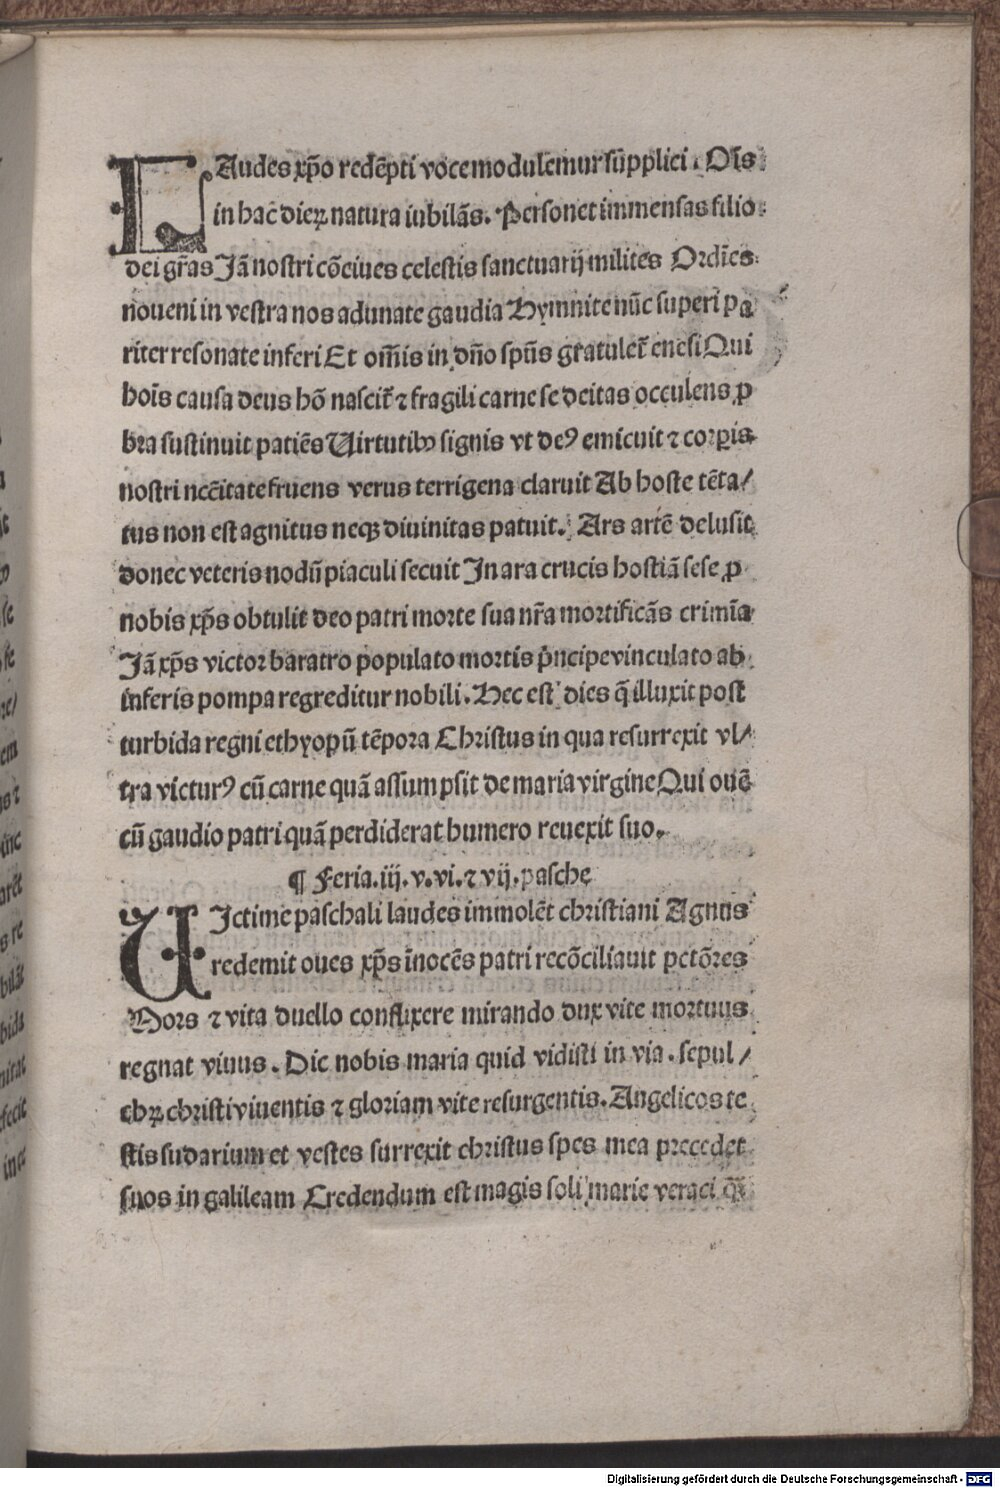 LAudes xp̄o redēpti voce modulemur supplici. Oīs
in hac dieꝝ natura iubilās. Personet immensas filio
dei gr̄as Jā nostri cōciues celestis sanctuarij milites Ordīes
noueni in vestra nos adunate gaudia Hymnite nūc superi pa
riter resonate inferi Et om̄is in dn̄o spūs gratulet̄ enesi Qui
hoīs causa deus hō nascit̄ ⁊ fragili carne se deitas occulens ꝓ
bra sustinuit patiēs Uirtutibꝰ signis vt deꝰ emicuit ⁊ corꝑis
nostri nec̄itate fruens verus terrigena claruit Ab hoste tēta/
tus non est agnitus neqꝫ diuinitas patuit. Ars artē delusit
donec veteris nodū piaculi secuit In ara crucis hostiā sese ꝓ
nobis xp̄s obtulit deo patri morte sua nr̄a mortificās crimīa
Jā xp̄s victor baratro populato mortis p̄ncipe vinculato ab
inferis pompa regreditur nobili. Hec est dies q̄ illuxit post
turbida regni ethyopū tēpora Christus in qua resurrexit vl/
tra victurꝰ cū carne quā assumpsit de maria virgine Qui ouē
cū gaudio patri quā perdiderat humero reuexit suo.
¶ Feria.iij.v.vi.⁊ vij.pasche
UIctime paschali laudes immolēt christiani Agnus
redemit oues xp̄s īnocēs patri recōciliauit pctōres
Mors ⁊ vita duello conflixere mirando dux vite mortuus
regnat viuus. Dic nobis maria quid vidisti in via. sepul/
chꝝ christi viuentis ⁊ gloriam vite resurgentis. Angelicos te
stis sudarium et vestes surrexit christus spes mea precedet
suos in galileam Credendum est magis soli marie veraci q̄ꝫ
Digitalisierung gefördert durch die Deutsche Forschungsgemeinschaft - DFG